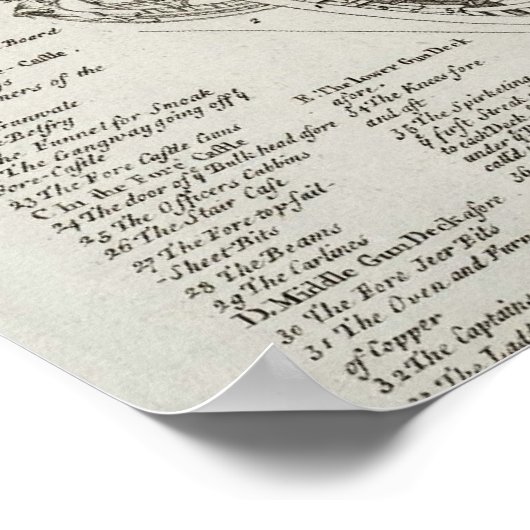 2
Board
Castle.
ners of the
Gunnale
Belfry
The Funnel for Smoak
The Gangway going off y
Fore-Castle
23 The Fore Castle Guns
C. In the Fore Castle
24 The door of y Bulk head afore
25 The Officers Cabbins
26 The Stair Case
27 The Fore-top-sail-
-Sheet Bits
28 The Beams
29 The Carlines
D. Middle Gun Deck afore
30 The Fore Jeer Bits
31 The Oven and Furn
of Copper
32 The Captain
The
E. The Lower Gun Deck
afore.
34 The Knees fore
and aft
35 The Spirketing
y first Streak
to each Deck
under
call'd
36